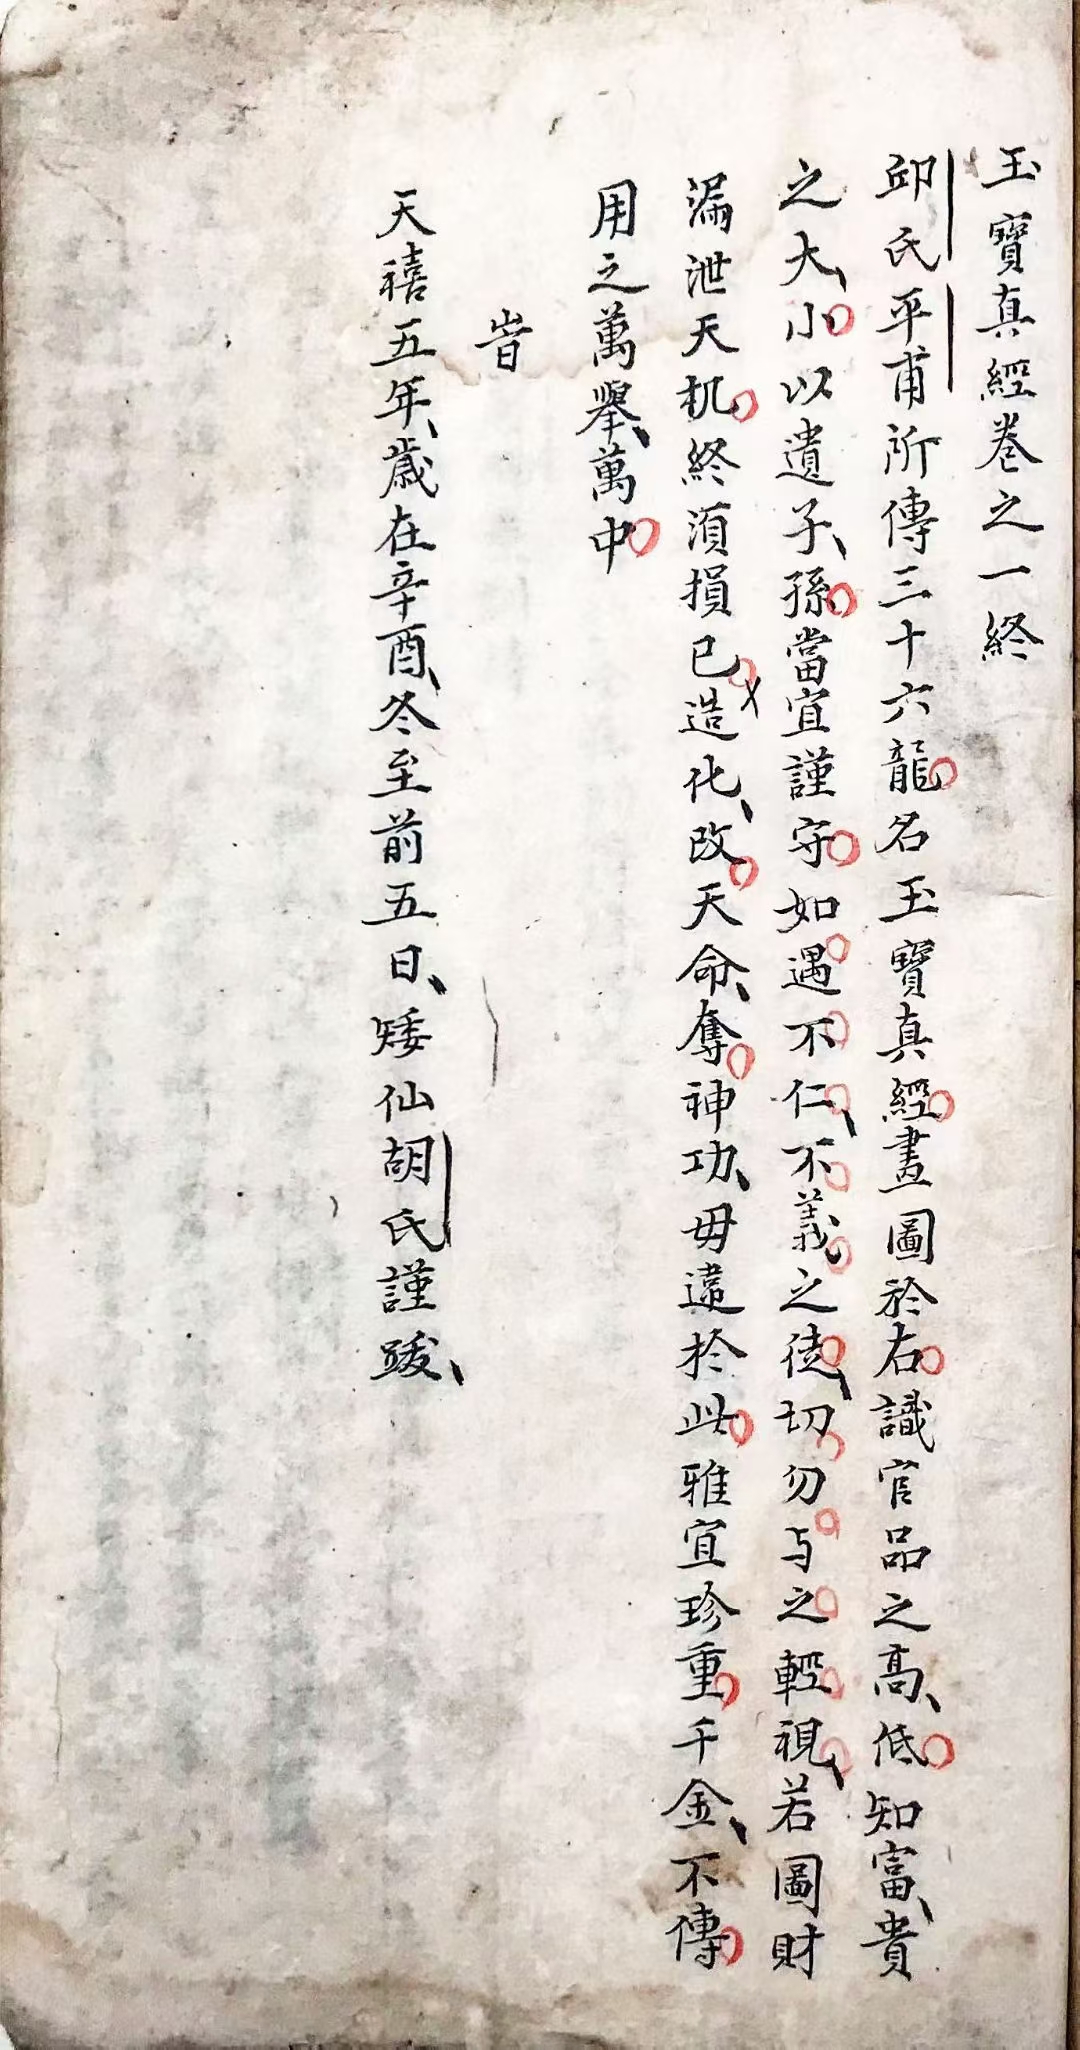 玉寶真經卷之一終
邱氏平甫所傳三十六龍名玉寶真經畫圖於右識官品之高低知富貴
之大小以遺子孫當宜謹守如遇不仁不義之徒切勿与之輕視若圖財
漏泄天机終須損已造化改天命奪神功毋違於此雅宜珍重千金不傳
用之萬舉萬中
旹
天禧五年歲在辛酉冬至前五日矮仙胡氏謹跋